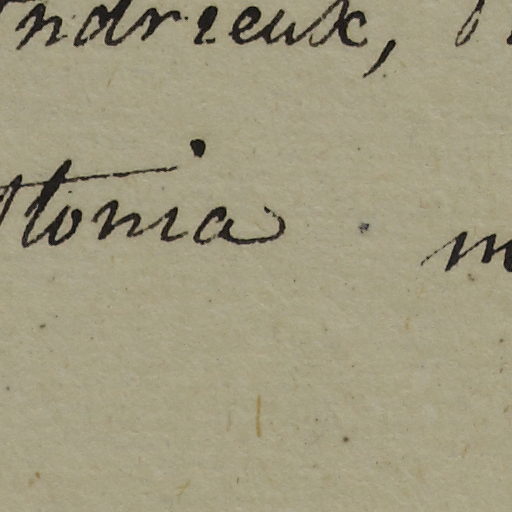 ndrieux,
ttonia m